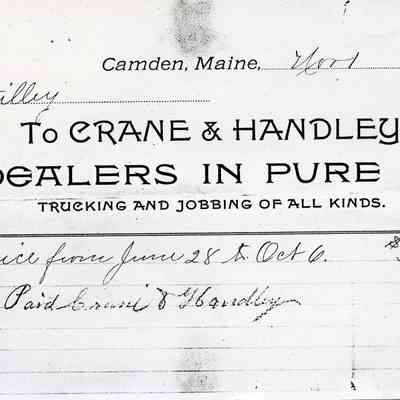 Camden, Maine, Nov 1
illey
To CRANE & HANDLEY
DEALERS IN PURE
TRUCKING AND JOBBING OF ALL KINDS.
ice from June 28 to Oct 6. $
Paid Crane & Handley